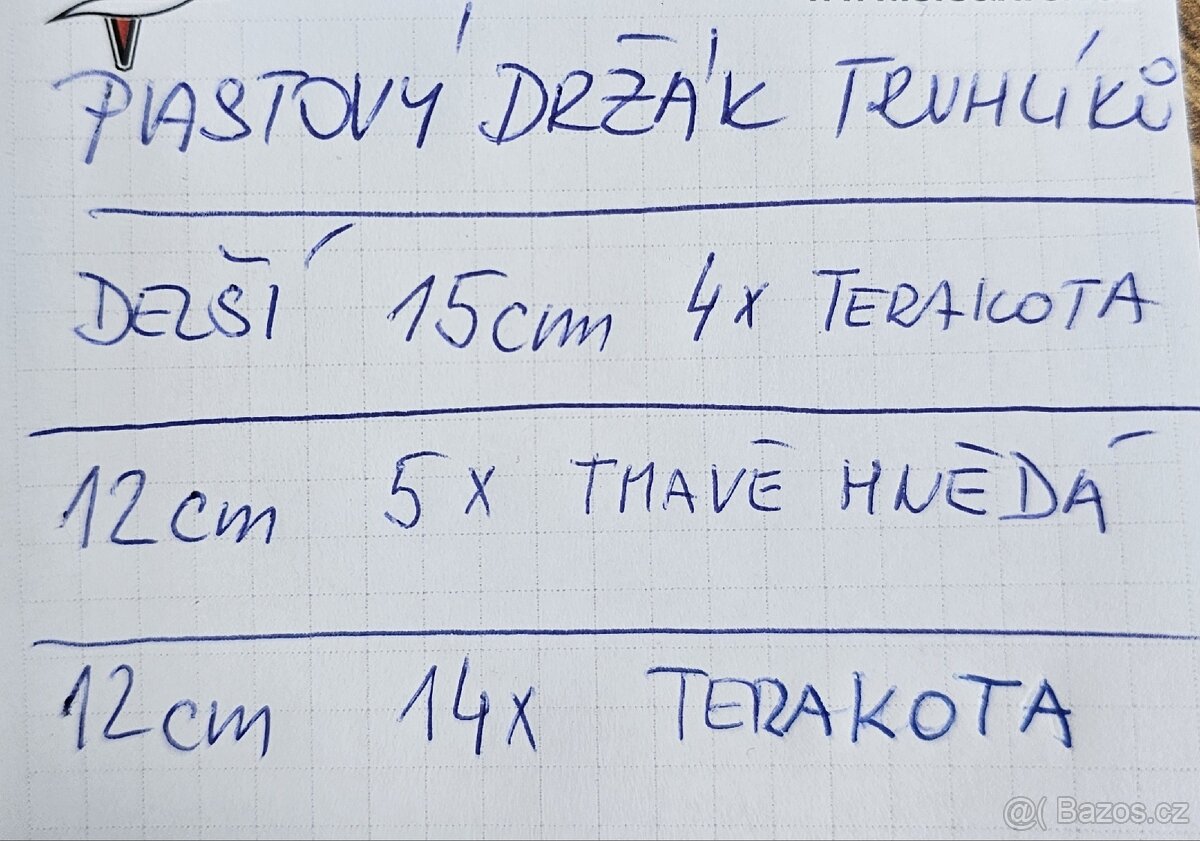 PLASTOVÝ DRŽÁK TRUHLÍKŮ
DELŠÍ 15cm 4x TERAKOTA
12cm 5x TMAVĚ HNĚDÁ
12cm 14x TERAKOTA
@( Bazos.cz